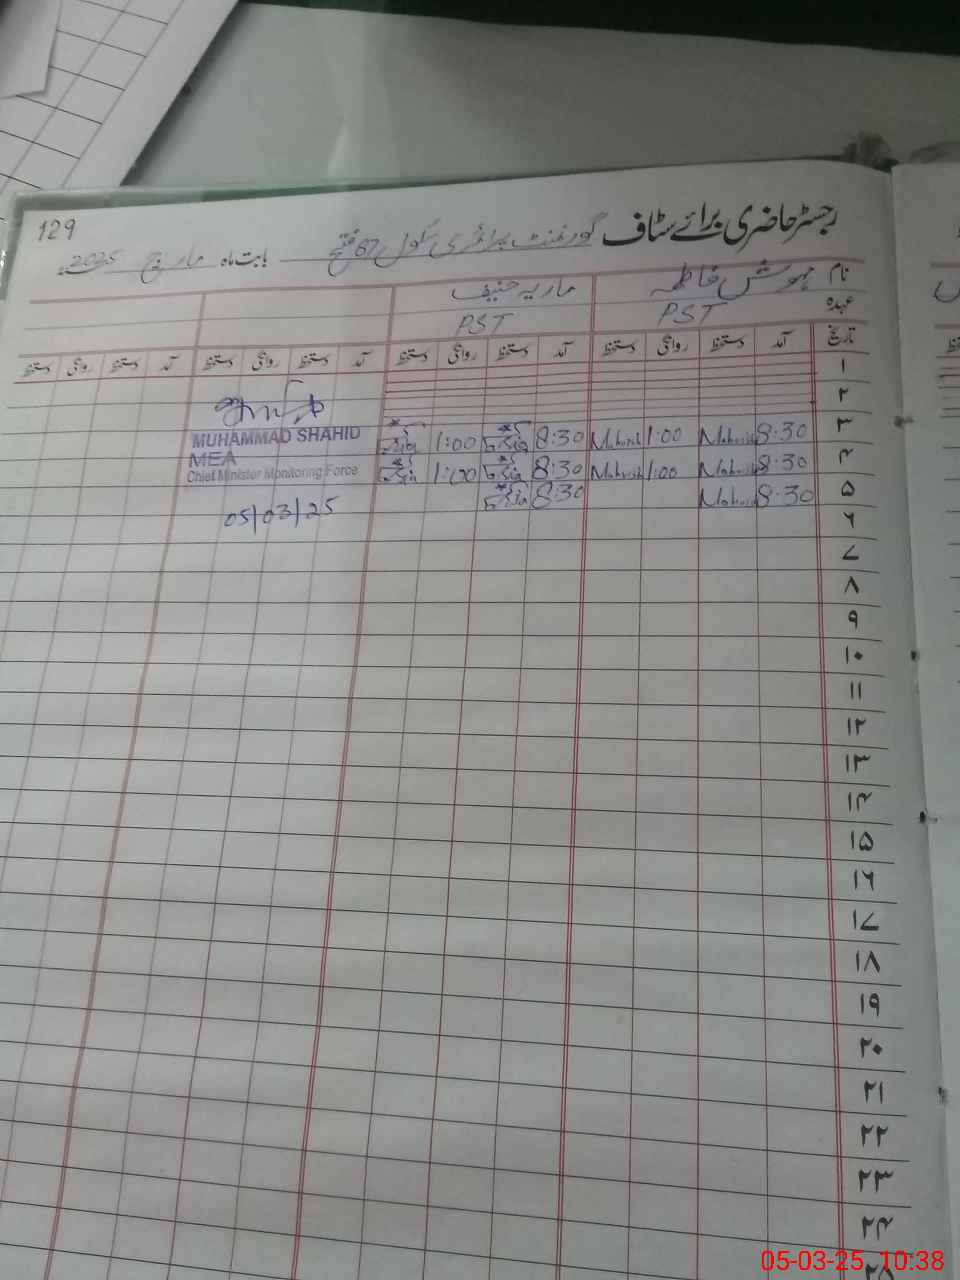 129
رجسٹر حاضری برائے سٹاف گورنمنٹ پرائمری سکول 67 فتح
بابت ماہ مارچ 2025ء
نام مہوش فاطمہ ماریہ حنیف
عہدہ PST PST
تاریخ آمد دستخط روانگی دستخط آمد دستخط روانگی دستخط آمد دستخط روانگی دستخط آمد دستخط روانگی دستخط
۱
۲
۳ 8:30 Mahvish 1:00 Mahvish 8:30 1:00
۴ 8:30 Mahvish 1:00 Mahvish 8:30 1:00
۵ 8:30 Mahvish 8:30
MUHAMMAD SHAHID
MEA
Chief Minister Monitoring Force
05/03/25
۶
۷
۸
۹
۱۰
۱۱
۱۲
۱۳
۱۴
۱۵
۱۶
۱۷
۱۸
۱۹
۲۰
۲۱
۲۲
۲۳
۲۴
۲۵
05-03-25 10:38